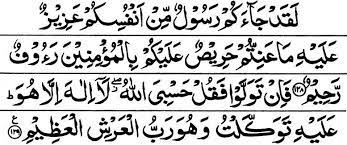 لَقَدْ جَآءَكُمْ رَسُوْلٌ مِّنْ اَنْفُسِكُمْ عَزِيْزٌ
عَلَيْهِ مَا عَنِتُّمْ حَرِيْصٌ عَلَيْكُمْ بِالْمُؤْمِنِيْنَ رَءُوْفٌ
رَّحِيْمٌ ﴿۱۲۸﴾ فَاِنْ تَوَلَّوْا فَقُلْ حَسْبِىَ اللّٰهُ ۖ لَاۤ اِلٰهَ اِلَّا هُوَ ؕ
عَلَيْهِ تَوَكَّلْتُ وَهُوَ رَبُّ الْعَرْشِ الْعَظِيْمِ ﴿۱۲۹﴾ ع